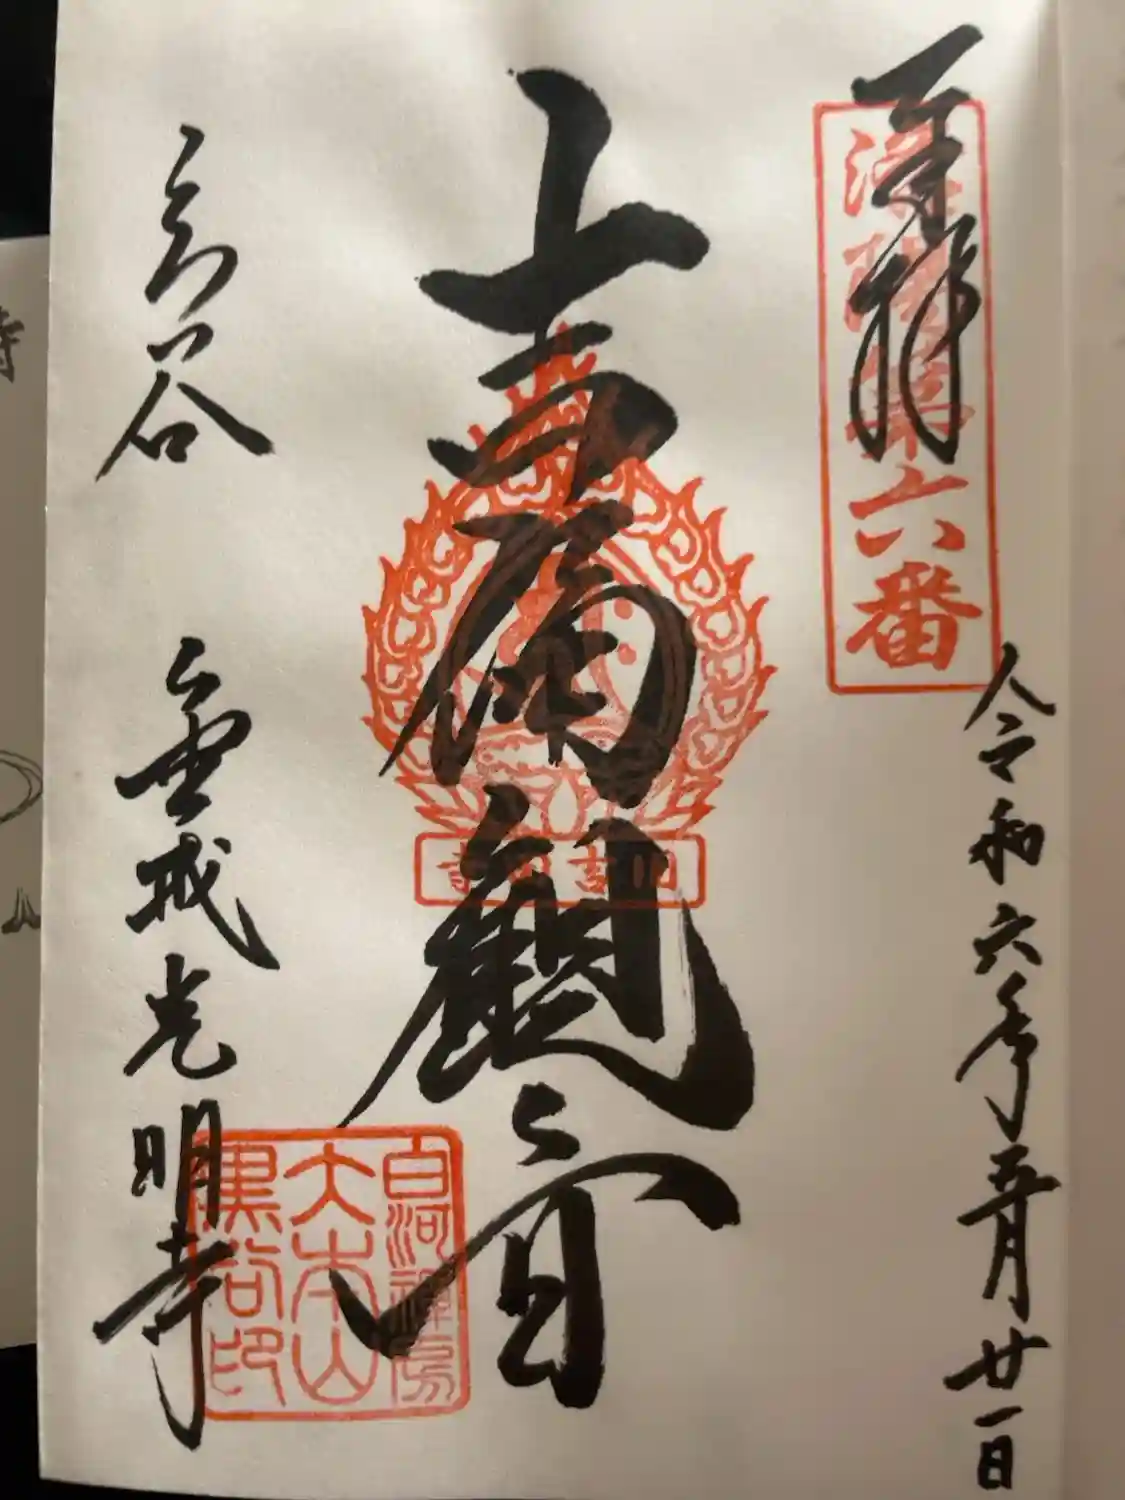 奉拝
洛陽第六番
令和六年五月廿一日
吉備観音
旧吉田寺
白河禪房
大本山
黒谷印
くろ谷
金戒光明寺
寺